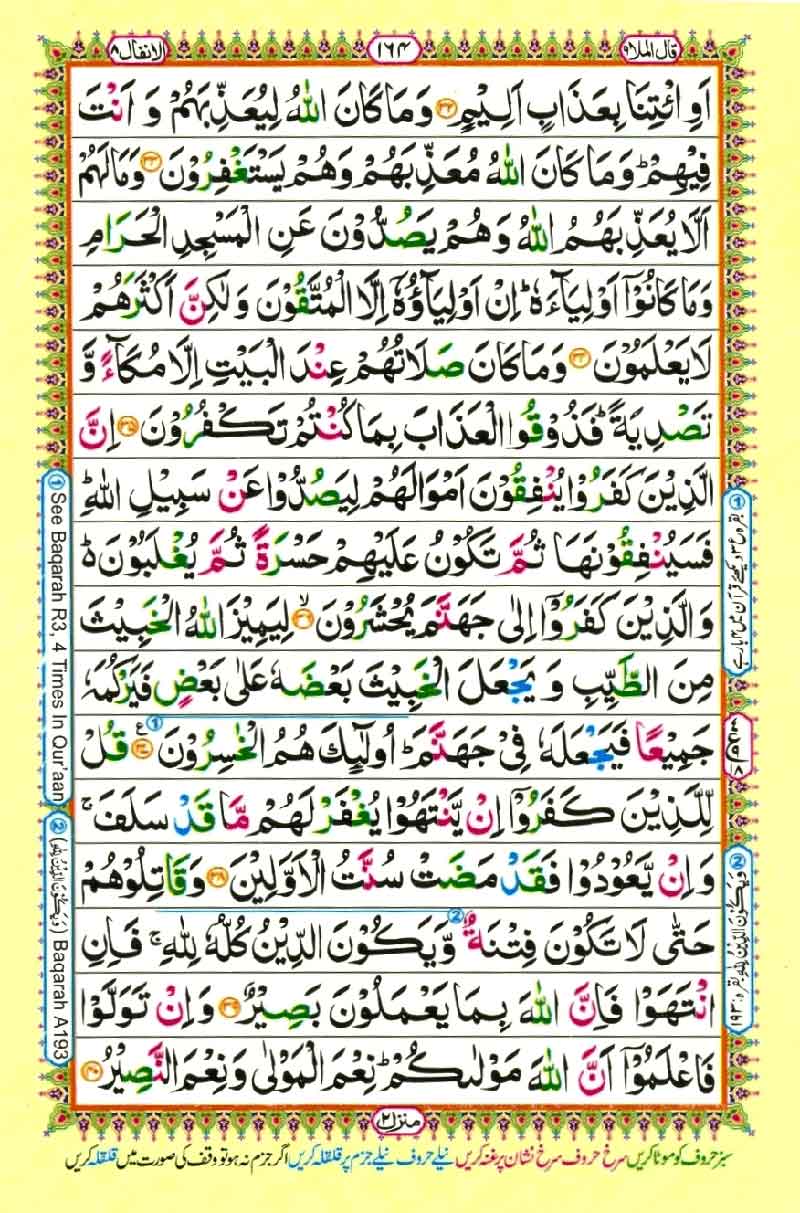 قال الملا ۹
۱۶۴
الانفال ۸
اَوِ ائْتِنَا بِعَذَابٍ اَلِيْمٍ ۝۳۲ وَمَا كَانَ اللّٰهُ لِيُعَذِّبَهُمْ وَ اَنْتَ
فِيْهِمْ ؕ وَمَا كَانَ اللّٰهُ مُعَذِّبَهُمْ وَهُمْ يَسْتَغْفِرُوْنَ ۝۳۳ وَمَا لَهُمْ
اَلَّا يُعَذِّبَهُمُ اللّٰهُ وَهُمْ يَصُدُّوْنَ عَنِ الْمَسْجِدِ الْحَرَامِ
وَمَا كَانُوْۤا اَوْلِيَآءَهٗ ؕ اِنْ اَوْلِيَآؤُهٗۤ اِلَّا الْمُتَّقُوْنَ وَلٰكِنَّ اَكْثَرَهُمْ
لَا يَعْلَمُوْنَ ۝۳۴ وَمَا كَانَ صَلَاتُهُمْ عِنْدَ الْبَيْتِ اِلَّا مُكَآءً وَّ
تَصْدِيَةً ؕ فَذُوْقُوا الْعَذَابَ بِمَا كُنْتُمْ تَكْفُرُوْنَ ۝۳۵ اِنَّ
الَّذِيْنَ كَفَرُوْا يُنْفِقُوْنَ اَمْوَالَهُمْ لِيَصُدُّوْا عَنْ سَبِيْلِ اللّٰهِ ؕ
فَسَيُنْفِقُوْنَهَا ثُمَّ تَكُوْنُ عَلَيْهِمْ حَسْرَةً ثُمَّ يُغْلَبُوْنَ ؕ
وَالَّذِيْنَ كَفَرُوْۤا اِلٰى جَهَنَّمَ يُحْشَرُوْنَ ۝۳۶ۙ لِيَمِيْزَ اللّٰهُ الْخَبِيْثَ
مِنَ الطَّيِّبِ وَ يَجْعَلَ الْخَبِيْثَ بَعْضَهٗ عَلٰى بَعْضٍ فَيَرْكُمَهٗ
جَمِيْعًا فَيَجْعَلَهٗ فِيْ جَهَنَّمَ ؕ اُولٰٓئِكَ هُمُ الْخٰسِرُوْنَ ۝۳۷ ع ① قُلْ
لِّلَّذِيْنَ كَفَرُوْۤا اِنْ يَّنْتَهُوْا يُغْفَرْ لَهُمْ مَّا قَدْ سَلَفَ ۚ
وَاِنْ يَّعُوْدُوْا فَقَدْ مَضَتْ سُنَّتُ الْاَوَّلِيْنَ ۝۳۸ وَقَاتِلُوْهُمْ
حَتّٰى لَا تَكُوْنَ فِتْنَةٌ ② وَّيَكُوْنَ الدِّيْنُ كُلُّهٗ لِلّٰهِ ۚ فَاِنِ
انْتَهَوْا فَاِنَّ اللّٰهَ بِمَا يَعْمَلُوْنَ بَصِيْرٌ ۝۳۹ وَاِنْ تَوَلَّوْا
فَاعْلَمُوْۤا اَنَّ اللّٰهَ مَوْلٰىكُمْ ؕ نِعْمَ الْمَوْلٰى وَنِعْمَ النَّصِيْرُ ۝۴۰
① See Baqarah R3, 4 Times In Qur'aan
② (وَيَكُوْنَ الدِّيْنُ لِلّٰهِ) Baqarah A193
② وَيَكُوْنَ الدِّيْنُ لِلّٰهِ بقرہ : ۱۹۳
منزل ۲
سبز حروف کو موٹا کریں سرخ حروف سرخ نشان پر غنہ کریں نیلے حروف نیلے جزم پر قلقلہ کریں اگر جزم نہ ہو تو وقف کی صورت میں قلقلہ کریں